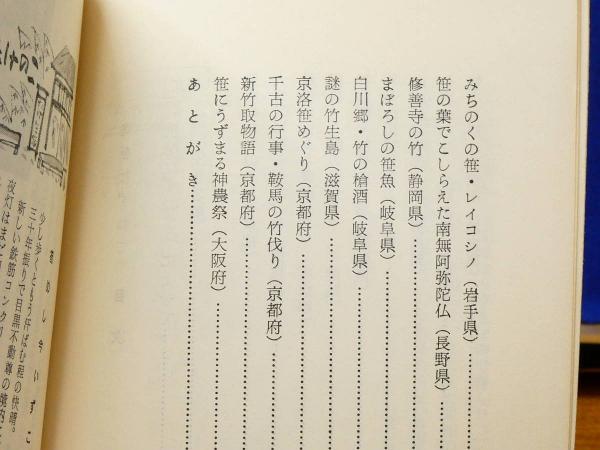 みちのくの笹・レイコシノ（岩手県）
笹の葉でこしらえた南無阿弥陀仏（長野県）
修善寺の竹（静岡県）
まぼろしの笹魚（岐阜県）
白川郷・竹の槍酒（岐阜県）
謎の竹生島（滋賀県）
京洛笹めぐり（京都府）
千古の行事・鞍馬の竹伐り（京都府）
新竹取物語（京都府）
笹にうずまる神農祭（大阪府）
あとがき
少し歩くともう汗ばむ程の快晴。
三十年振りで目黒不動尊の境内に
新しい鉄筋コンクリ